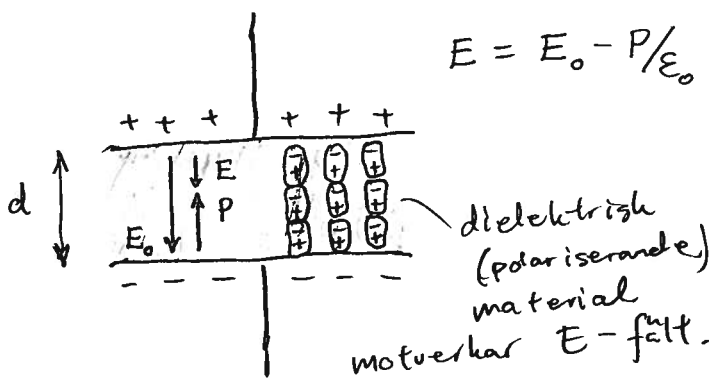 E = E₀ - P/ε₀
+ + + + + +
d
E
P
E₀
- + - + - +
- + - + - +
- + - + - +
- - - - - - - -
dielektrisk
(polariserande)
material
motverkar E-fält.